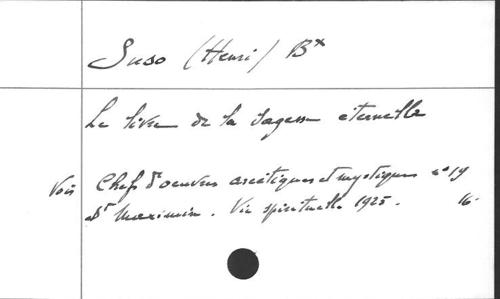 Suso (Henri) Bx
Le livre de la sagesse éternelle
Voir Chefs d'oeuvres ascétiques et mystiques n° 19
St Maximin. Vie spirituelle 1925. 16.